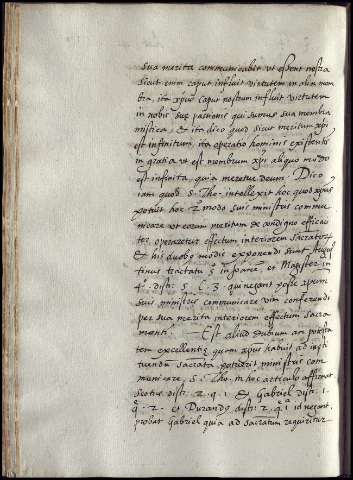 sua merita communicabit ut essent nostra
sicut enim caput influit virtutem in alia mem
bra, ita xp̃us caput nostrum influit virtutem
in nobis suę passionis qui sumus sua membra
mistica, & ita dico quod sicut meritum xp̃i
est infinitum, ita operatio hominis existentis
in gratia ut est membrum xp̃i aliquo modo
est infinita, quia meretur deum. Dico
iam quod S. Tho. intellexit hoc quod xp̃us
potuit hoc 2º modo suis ministris commu
nicare ut eorum meritum de condigno efficaci
ter operaretur effectum interiorem sacramẽtorũ
& his duobus modis exponendi sunt Augus
tinus tractatu 5 in Joanẽ, et Magister in
4º. dist: 5. C. 3. qui negant posse xp̃um
suis ministris communicare vim conferendi
per sua merita interiorem effectum sacra
menti. Est aliud dubium an potesta
tem excellentię quam xp̃us habuit ad insti
tuenda sacramẽta potuerit ministris com
municare, S. Tho. in hoc articulo affirmat
scotus dist: 2. q. 1. & Gabriel dist: 1.
q. 2. et Durandus dist: 2. q. 1ª id negant,
probat Gabriel quia ad sacramẽtum requiritur